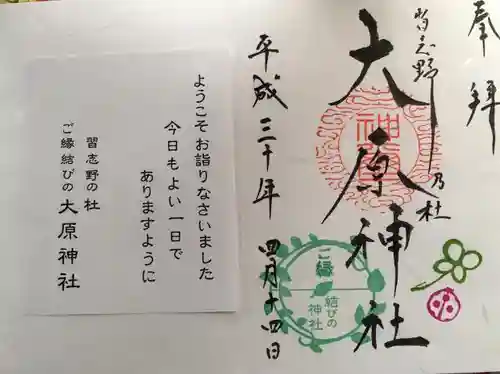 奉拝
習志野乃杜
大原神社
平成三十年 四月十四日
ご縁
結びの
神社
ようこそ お詣り なさいました
今日も よい 一日で
ありますように
習志野の 杜
ご縁結びの 大原神社